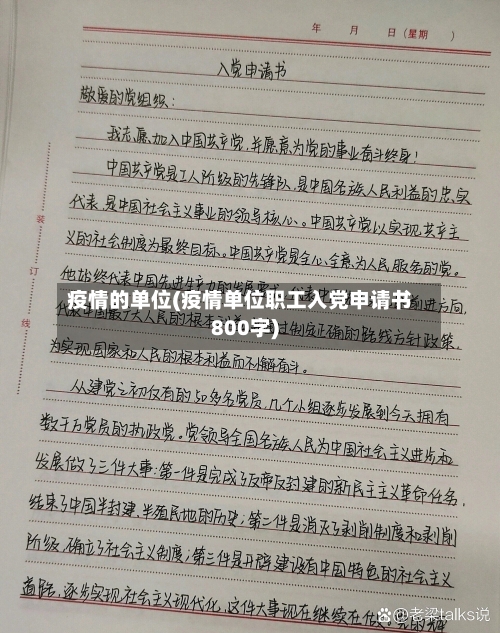 年 月 日(星期 )
入党申请书
敬爱的党组织:
我志愿加入中国共产党,并愿意为党的事业奋斗终身!
中国共产党是工人阶级的先锋队,是中国各族人民利益的忠实
代表,是中国社会主义事业的领导核心。中国共产党以实现共产主
义的社会制度为最终目标。中国共产党是全心全意为人民服务的党。
他始终代表中国先进生产力的发展要求,代表中国 进方向,
疫情的单位(疫情单位职工入党申请书
代表中国最广大人民的根本利益, 过制定正确的路线方针政策,
800字)
为实现国家和人民的根本利益而不懈奋斗。
从建党之初仅有的50多名党员,几个小组逐步发展到今天拥有
数千万党员的执政党。党领导全国各族人民为中国社会主义进步和
发展做了三件大事:第一件是完成了反帝反封建的新民主主义革命任务,
结束了中国半封建、半殖民地的历史;第二件是消灭了剥削制度和剥削
阶级,确立了社会主义制度;第三件是开辟建设有中国特色的社会主义
道路,逐步实现社会主义现代化,这件大事现在继续在做。党的辉
装
订
线
老梁talks说